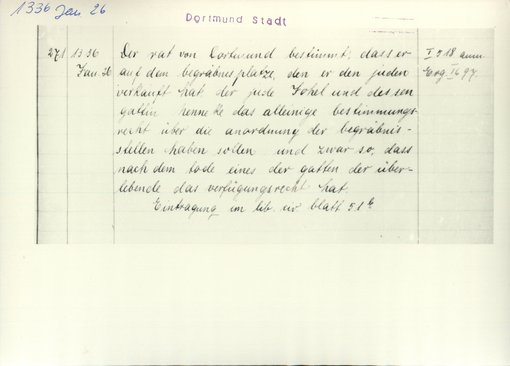 1336 Jan 26
Dortmund Stadt
271 1336 Der rat von Dortmund bestimmt, dass er I 518 anm
Jan. 26 auf dem begräbnisplatze, den er den juden Erg. I 697.
verkauft hat der jude Johel und dessen
gattin henneke das alleinige bestimmungs-
recht über die anordnung der begräbnis-
stellen haben sollen und zwar so, dass
nach dem tode eines der gatten der über-
lebende das verfügungsrecht hat.
Eintragung im lib. civ. blatt 51b